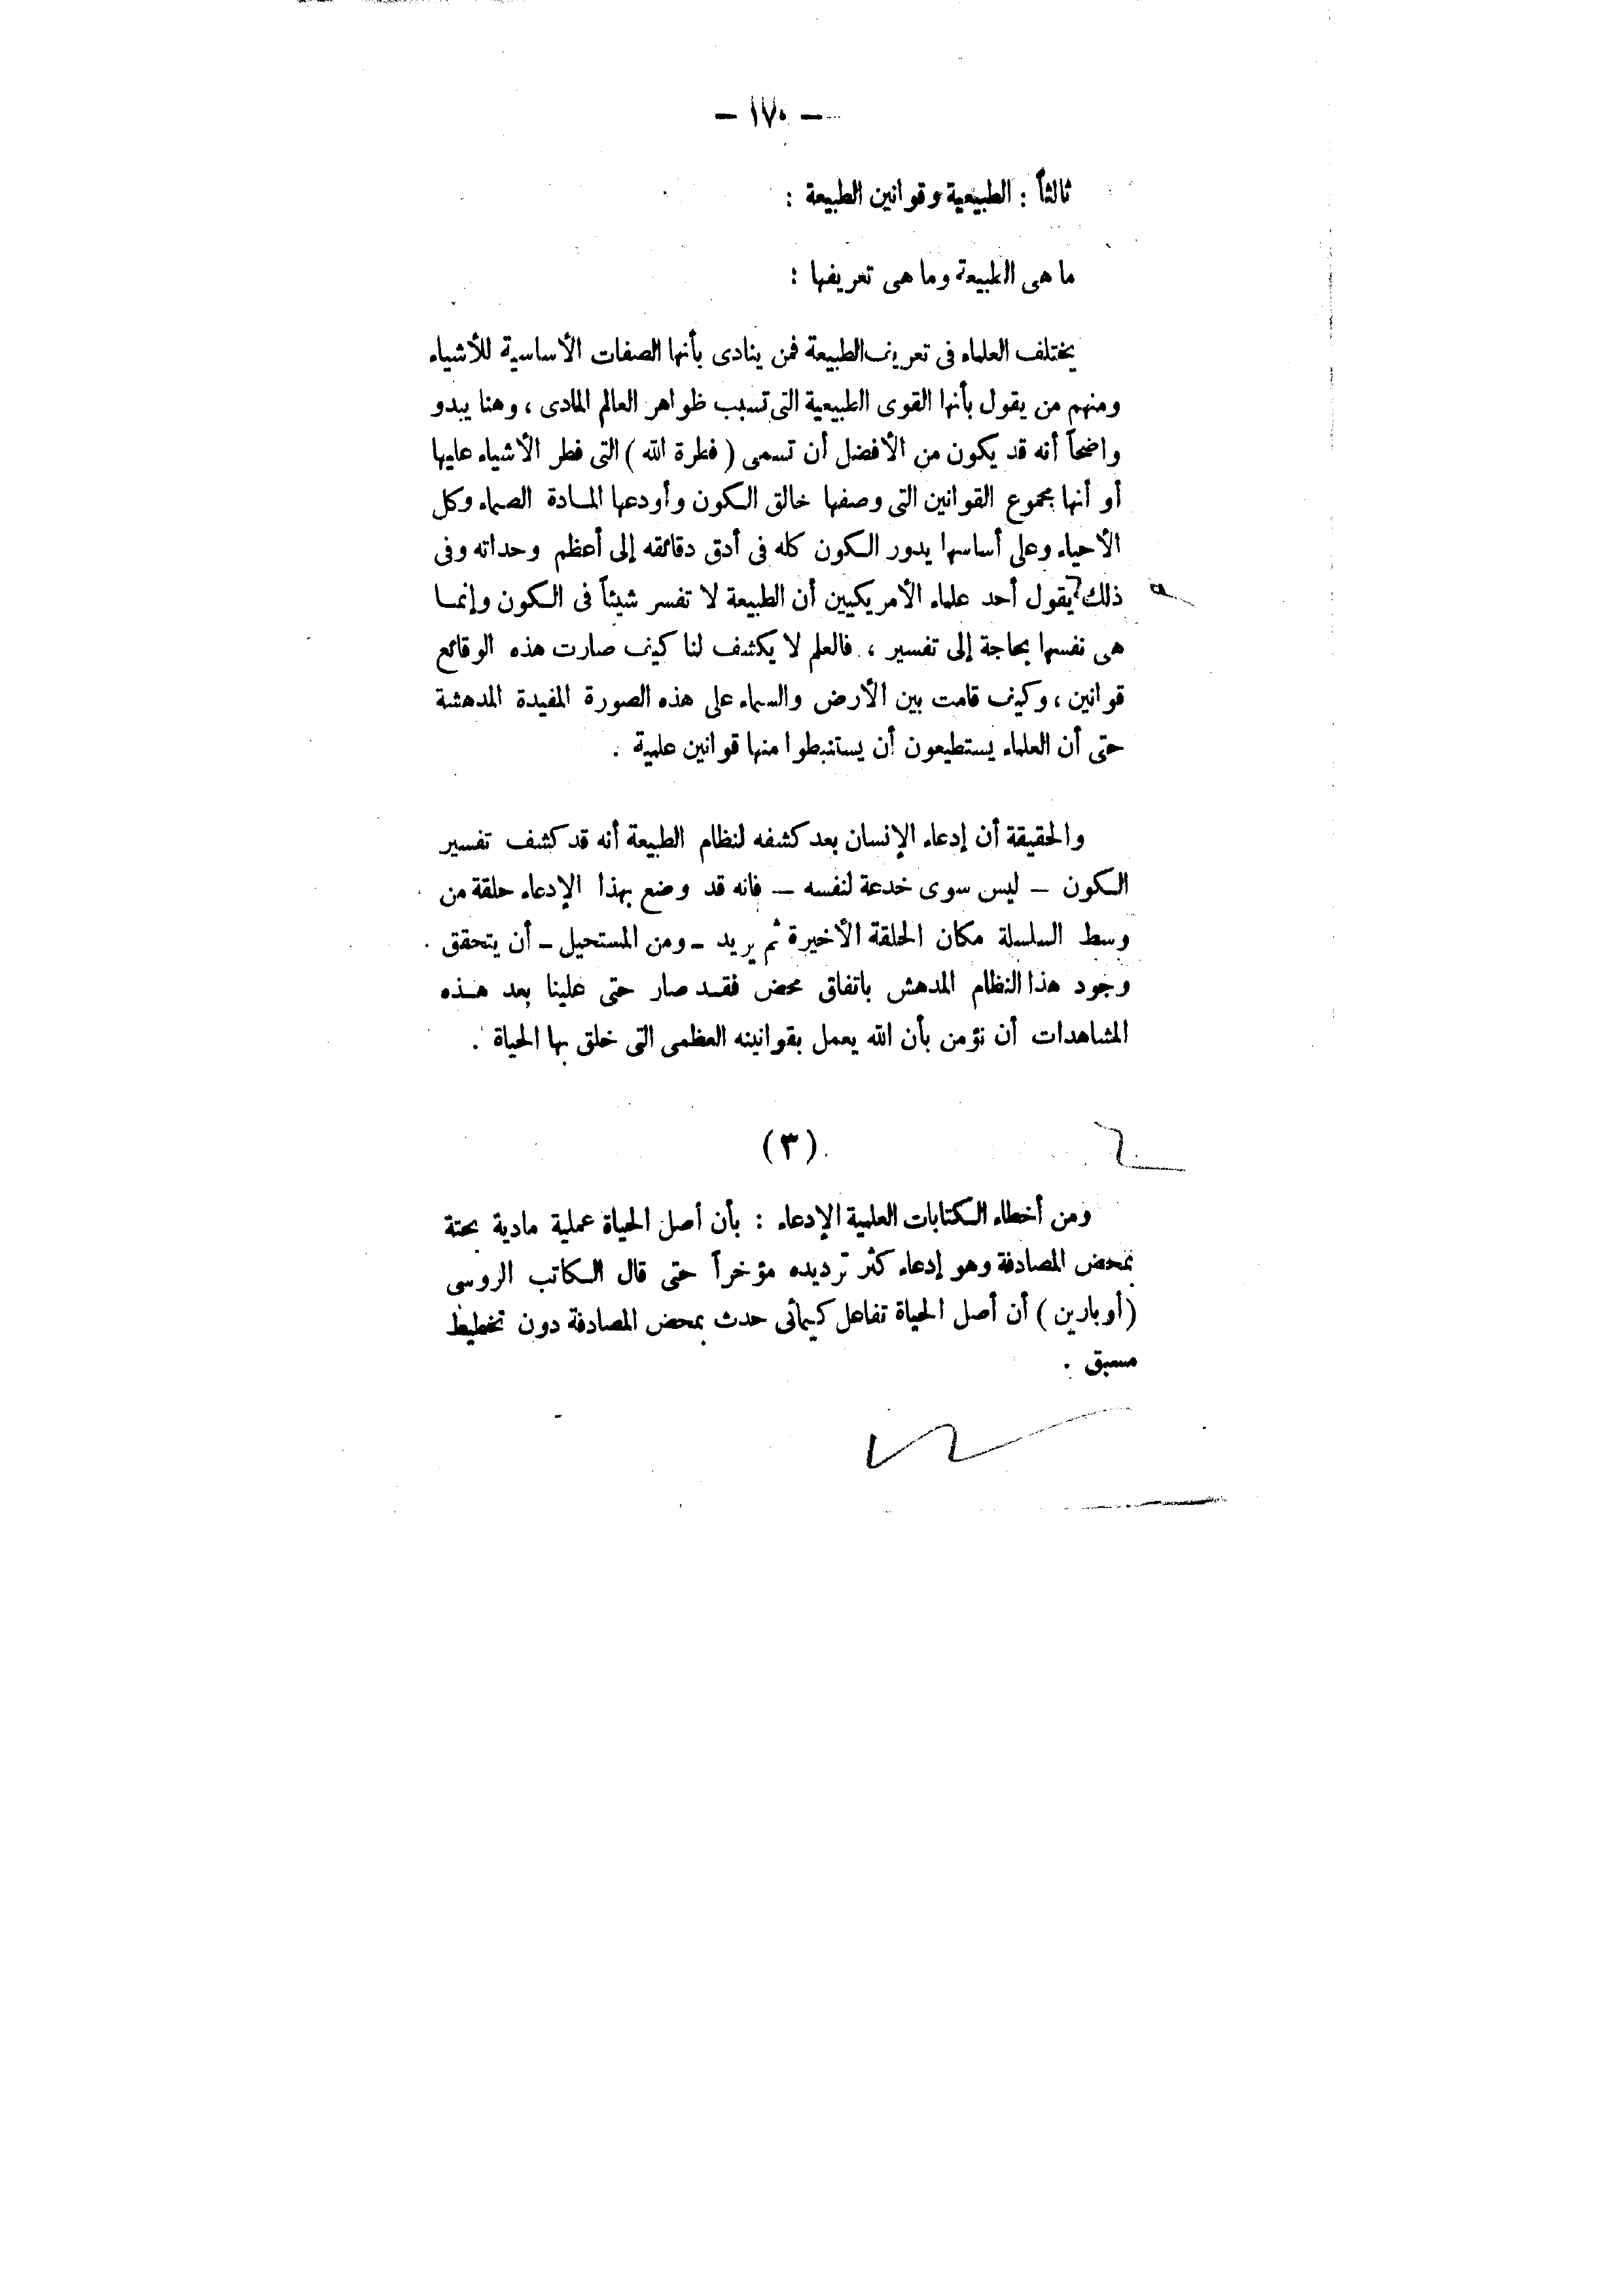 — ١٧٠ —
ثالثاً : الطبيعية وقوانين الطبيعة :
ما هى الطبيعة وما هى تعريفها :
يختلف العلماء فى تعريف الطبيعة فمن ينادى بأنها الصفات الأساسية للأشياء
ومنهم من يقول بأنها القوى الطبيعية التى تسبب ظواهر العالم المادى ، وهنا يبدو
واضحاً أنه قد يكون من الأفضل أن تسمى ( فطرة الله ) التى فطر الأشياء عليها
أو أنها مجموع القوانين التى وصفها خالق الكون وأودعها المادة الصماء وكل
الأحياء وعلى أساسها يدور الكون كله فى أدق دقائقه إلى أعظم وحداته وفى
ذلك يقول أحد علماء الأمريكيين أن الطبيعة لا تفسر شيئاً فى الكون وإنما
هى نفسها بحاجة إلى تفسير ، فالعلم لا يكشف لنا كيف صارت هذه الوقائع
قوانين ، وكيف قامت بين الأرض والسماء على هذه الصورة المفيدة المدهشة
حتى أن العلماء يستطيعون أن يستنبطوا منها قوانين علمية .
والحقيقة أن إدعاء الإنسان بعد كشفه لنظام الطبيعة أنه قد كشف تفسير
الكون — ليس سوى خدعة لنفسه — فانه قد وضع بهذا الإدعاء حلقة من
وسط السلسلة مكان الحلقة الأخيرة ثم يريد — ومن المستحيل — أن يتحقق
وجود هذا النظام المدهش باتفاق محض فقد صار حتى علينا بعد هذه
المشاهدات أن نؤمن بأن الله يعمل بقوانينه العظمى التى خلق بها الحياة .
( ٣ )
ومن أخطاء الكتابات العلمية الإدعاء : بأن أصل الحياة عملية مادية بحتة
بمحض المصادفة وهو إدعاء كثر ترديده مؤخراً حتى قال الكاتب الروسى
( أوبارين ) أن أصل الحياة تفاعل كيمائى حدث بمحض المصادفة دون تخطيط
مسبق .